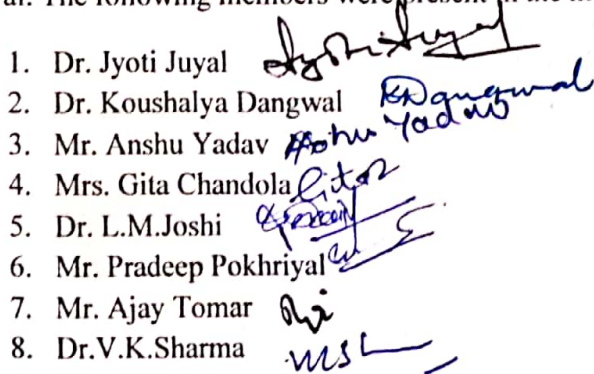 al. The following members were present in the
1. Dr. Jyoti Juyal Jyoti Juyal
2. Dr. Koushalya Dangwal KDangwal
3. Mr. Anshu Yadav Anshu Yadav
4. Mrs. Gita Chandola Gita
5. Dr. L.M.Joshi
6. Mr. Pradeep Pokhriyal
7. Mr. Ajay Tomar
8. Dr.V.K.Sharma